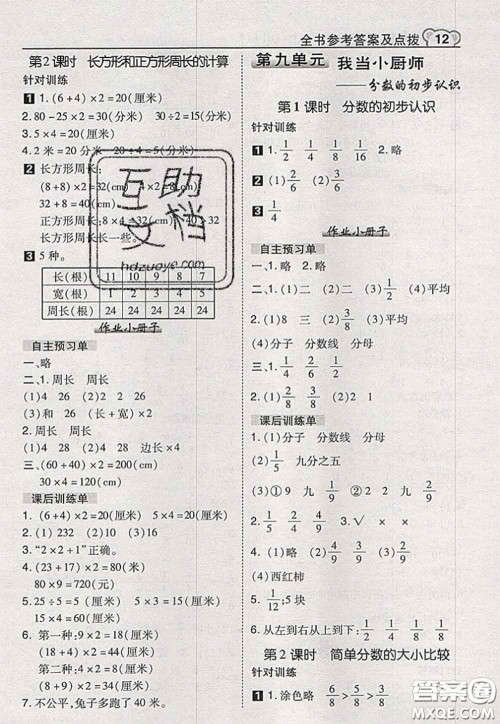 全书参考答案及点拨 12
第2课时 长方形和正方形周长的计算
针对训练
1 1. (6+4)×2=20(厘米)
2. 80-25×2=30(分米) 30÷2=15(分米)
3. 5×4=20(厘米)
4. 2米=20分米 20÷4=5(分米)
2 长方形周长:
(8+8)×2=32(cm)
32+8=40(cm)
正方形周长:8×4=32(cm) 40>32
长方形周长长一些。
3 5种。
长(根) 11 10 9 8 7
宽(根) 1 2 3 4 5
周长(根) 24 24 24 24 24
作业小册子
自主预习单
一、1. 周长 周长
(1)4 28 (2)4 26
(3)和 26 (长+宽)×2
2. 周长 (1)4 28 (2)4 28
三、(60+40)×2=200(厘米)
30×4=120(厘米)
课后训练单
1. (6+4)×2=20(厘米) 5×4=20(厘米)
2. (1)232 (2)10 (3)16
3. “2×2+1”正确。
4. (50+40)×2=180(元)
80×9=720(元)
5. 25÷5=5(厘米)
(5+5)×2=20(厘米)
6. 第一种:9×2=18(厘米)
(18+9)×2=54(厘米)
第二种:9×2=18(厘米)
18×4=72(厘米)
7. 不公平,兔子多跑了40米。
第九单元 我当小厨师
——分数的初步认识
第1课时 分数的初步认识
针对训练
1 1. 1/2 1/4 1/8 1/16 2. 略
2 (1) 2/6 (2) 3/6
3 1/4
作业小册子
自主预习单
一、1. 略 2. 略
二、1. 一 二 (1)二 (2) 2/4 (3)平均
2. (1)8 一 (2) 3/8 (3)平均
(4)分子 分数线 分母
三、1. 1/4 1/2 1/6 1/5
2. 1/3 2/3 5/8 7/8
课后训练单
1. (1)分子 分数线 分母
(2) 1/7 2/8 九分之五
(3)①9 九 1/9 ②9 九 2/9 4/9
2. ✗✓✗
3. (1)略 (2)略 (3) 1/9 2/9 4/9
(4)西红柿
5. 1/12;5块
6. 从左到右从上到下:1/2 1/4 1/8
第2课时 简单分数的大小比较
针对训练
1 1. 涂色略 6/8>5/8>3/8
互助文档
hdzuoye.com
答案圈
MXQE.COM